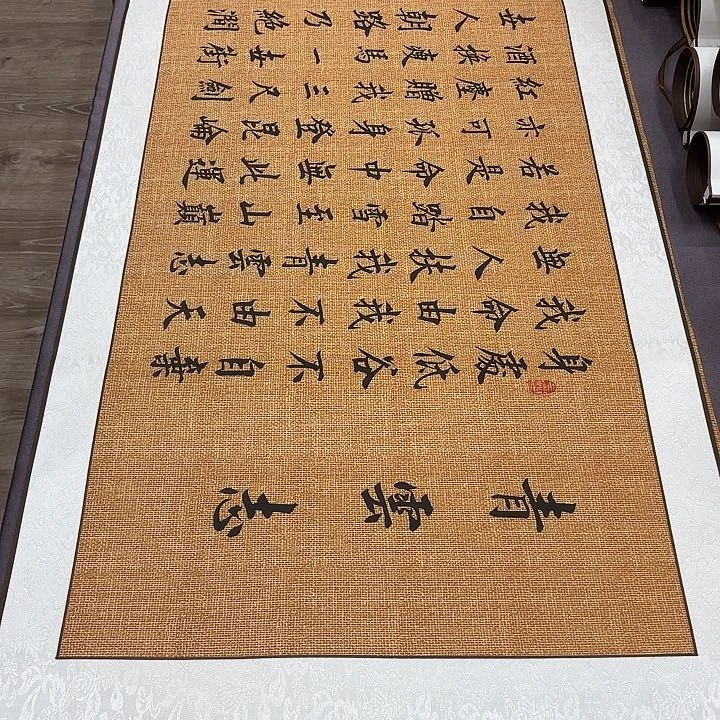 青雲志
身處低谷不自棄
我命由我不由天
無人扶我青雲志
我自踏雪至山巔
若是命中無此運
亦可孤身登昆崘
紅塵贈我三尺劍
酒換瘦馬一世街
世人朝路乃絕澗